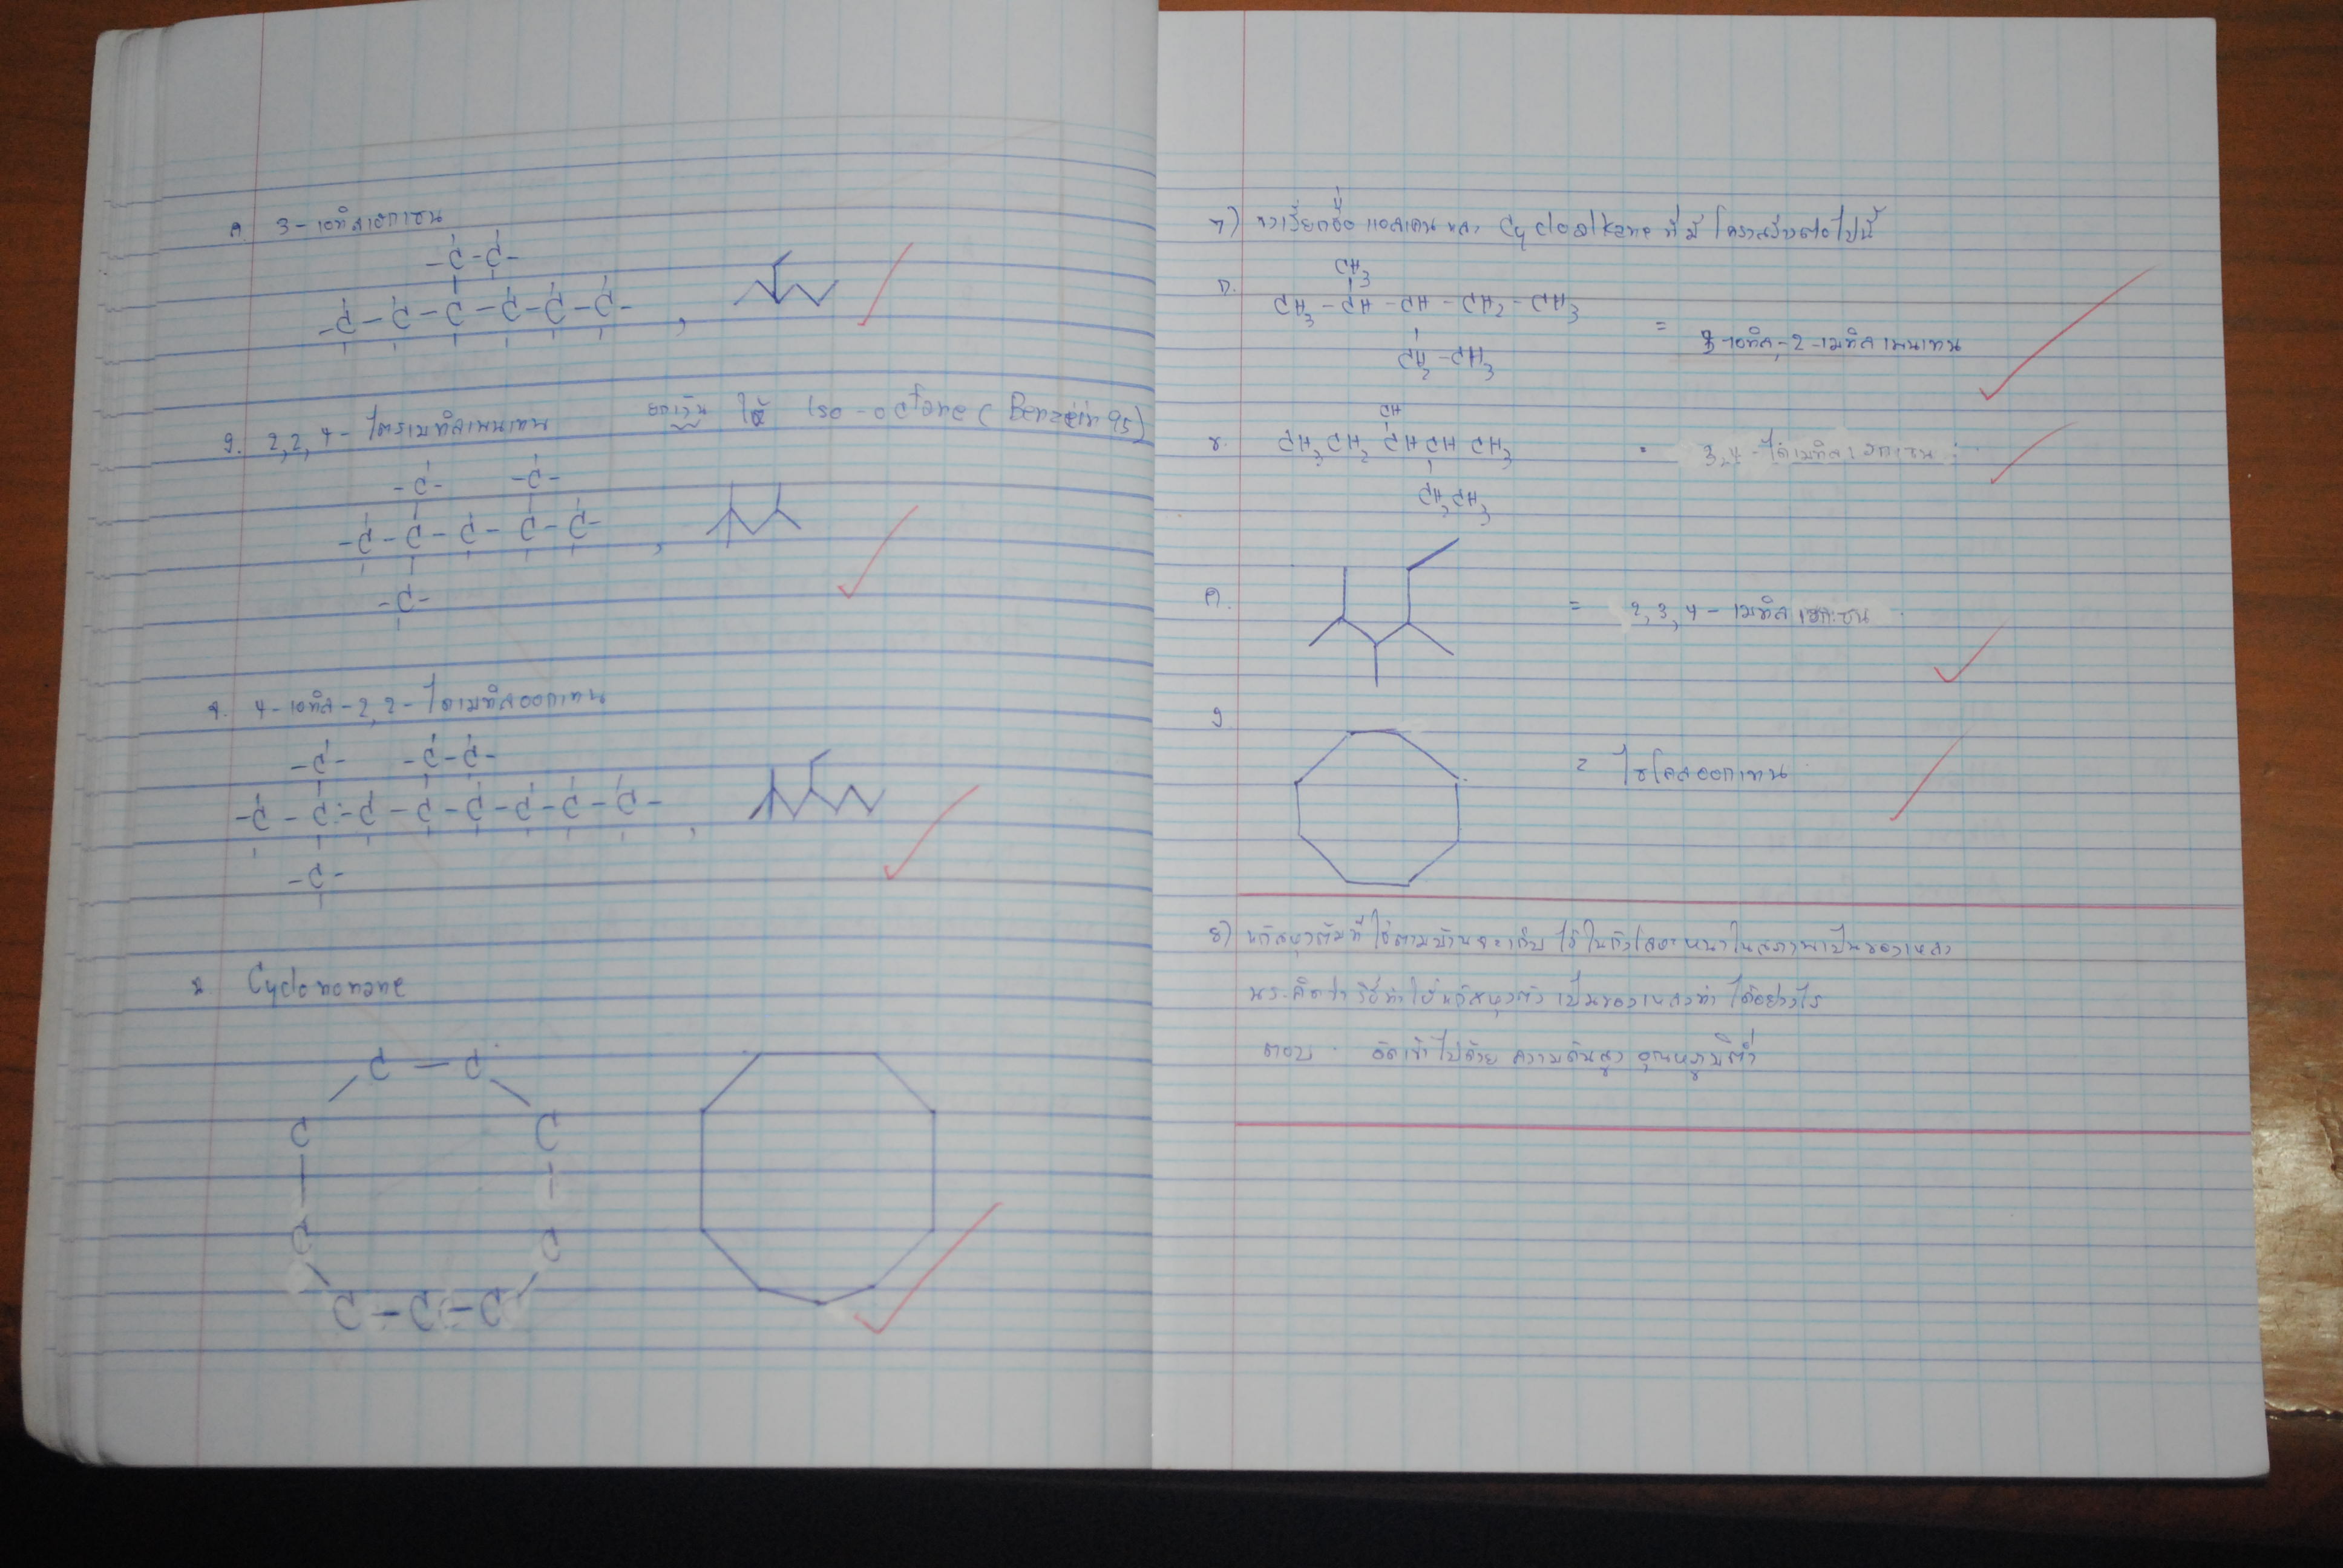 ค. 3-เอทิลเฮกเซน
-C-C-
-C-C-C-C-C-C- ,
ง. 2,2,4-ไตรเมทิลเพนเทน ยกเว้น ใช้ Iso-octane (Benzein 95)
-C- -C-
-C-C-C-C-C- ,
-C-
จ. 4-เอทิล-2,2-ไดเมทิลออกเทน
-C- -C-C-
-C-C-C-C-C-C-C-C- ,
-C-
ฉ. Cyclononane
C-C
C C
C C
C-C-C
7) จงเรียกชื่อ แอลเคน และ Cycloalkane ที่มี โครงสร้างต่อไปนี้
CH3
ก. CH3-CH-CH-CH2-CH3
= 3-เอทิล-2-เมทิลเพนเทน
CH2-CH3
CH
ข. CH3CH2CHCHCH3 = 3,4-ไดเมทิลเฮกเซน
CH2CH3
ค. = 2,3,4-เมทิลเฮกเซน
ง
= ไซโคลออกเทน
8) แก๊สหุงต้มที่ใช้ตามบ้านจะเก็บไว้ในถังโลหะหนาในสภาพเป็นของเหลว
นร.คิดว่าวิธีทำให้แก๊สหุงต้มเป็นของเหลวทำได้อย่างไร
ตอบ อัดเข้าไปด้วย ความดันสูง อุณหภูมิต่ำ